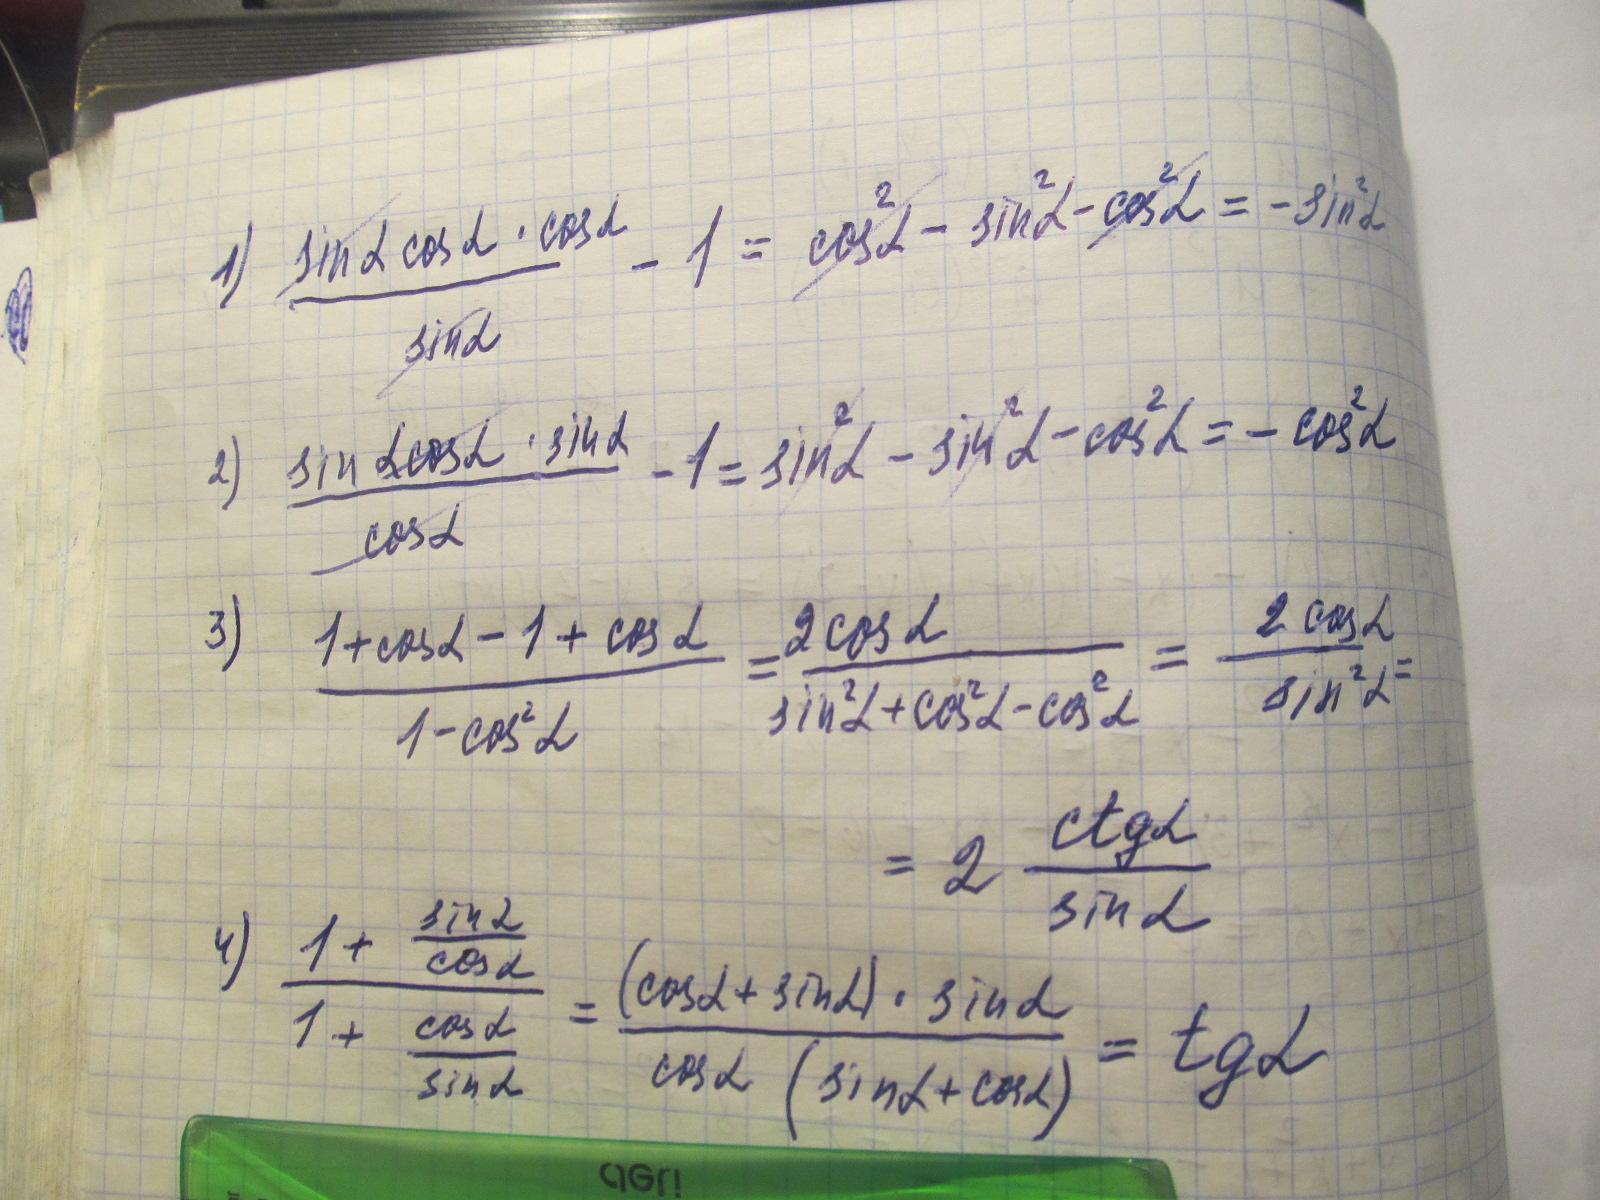 1) sinα cosα · cosα / sinα - 1 = cos²α - sin²α - cos²α = - sin²α
2) sinα cosα · sinα / cosα - 1 = sin²α - sin²α - cos²α = - cos²α
3) 1 + cosα - 1 + cosα / 1 - cos²α = 2 cosα / sin²α + cos²α - cos²α = 2 cosα / sin²α =
= 2 ctgα / sinα
4) 1 + sinα / cosα / 1 + cosα / sinα = (cosα + sinα) · sinα / cosα (sinα + cosα) = tgα